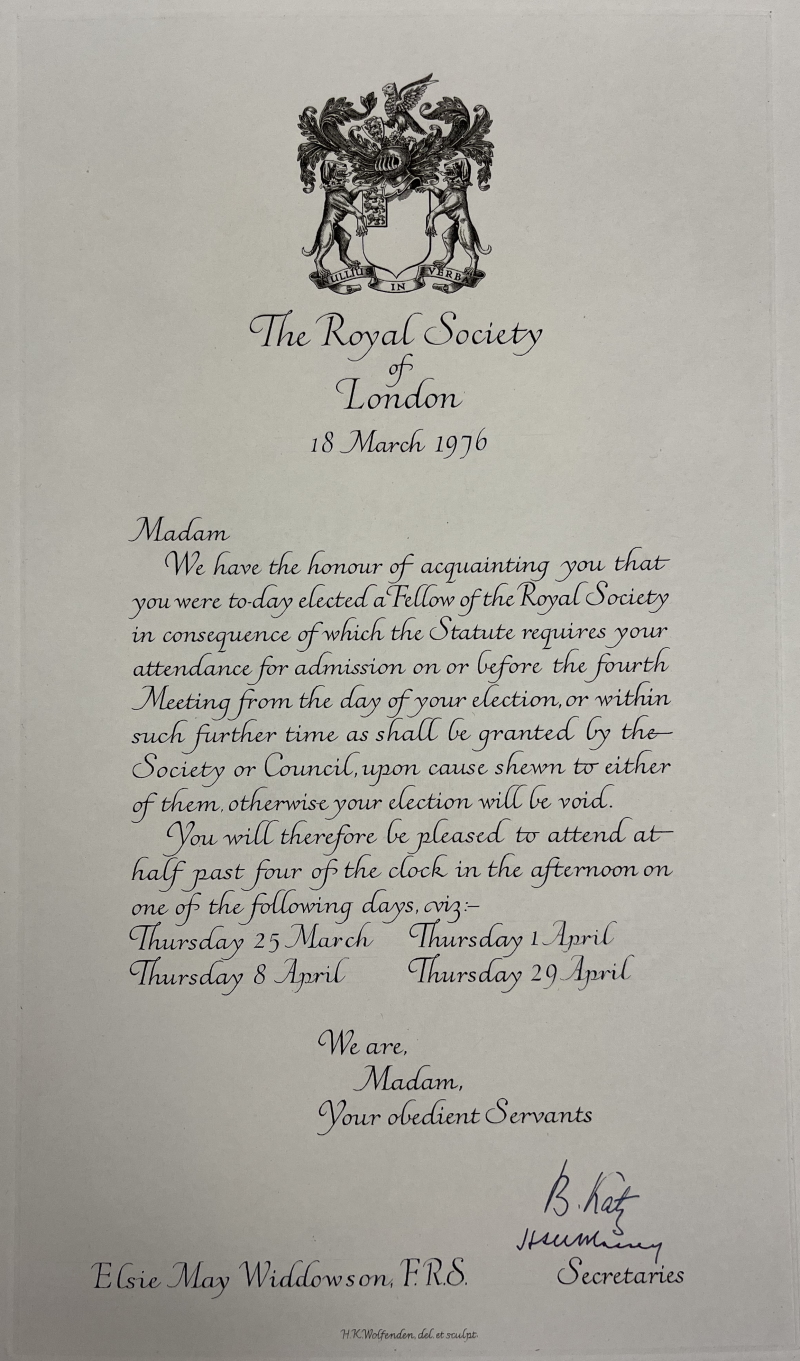 NULLIUS IN VERBA
The Royal Society
of
London
18 March 1976
Madam
We have the honour of acquainting you that
you were to-day elected a Fellow of the Royal Society
in consequence of which the Statute requires your
attendance for admission on or before the fourth
Meeting from the day of your election, or within
such further time as shall be granted by the
Society or Council, upon cause shewn to either
of them, otherwise your election will be void.
You will therefore be pleased to attend at
half past four of the clock in the afternoon on
one of the following days, viz:-
Thursday 25 March Thursday 1 April
Thursday 8 April Thursday 29 April
We are,
Madam,
Your obedient Servants
B. Katz
Elsie May Widdowson, F.R.S. Secretaries
H.K.Wolfenden, del. et sculpt.